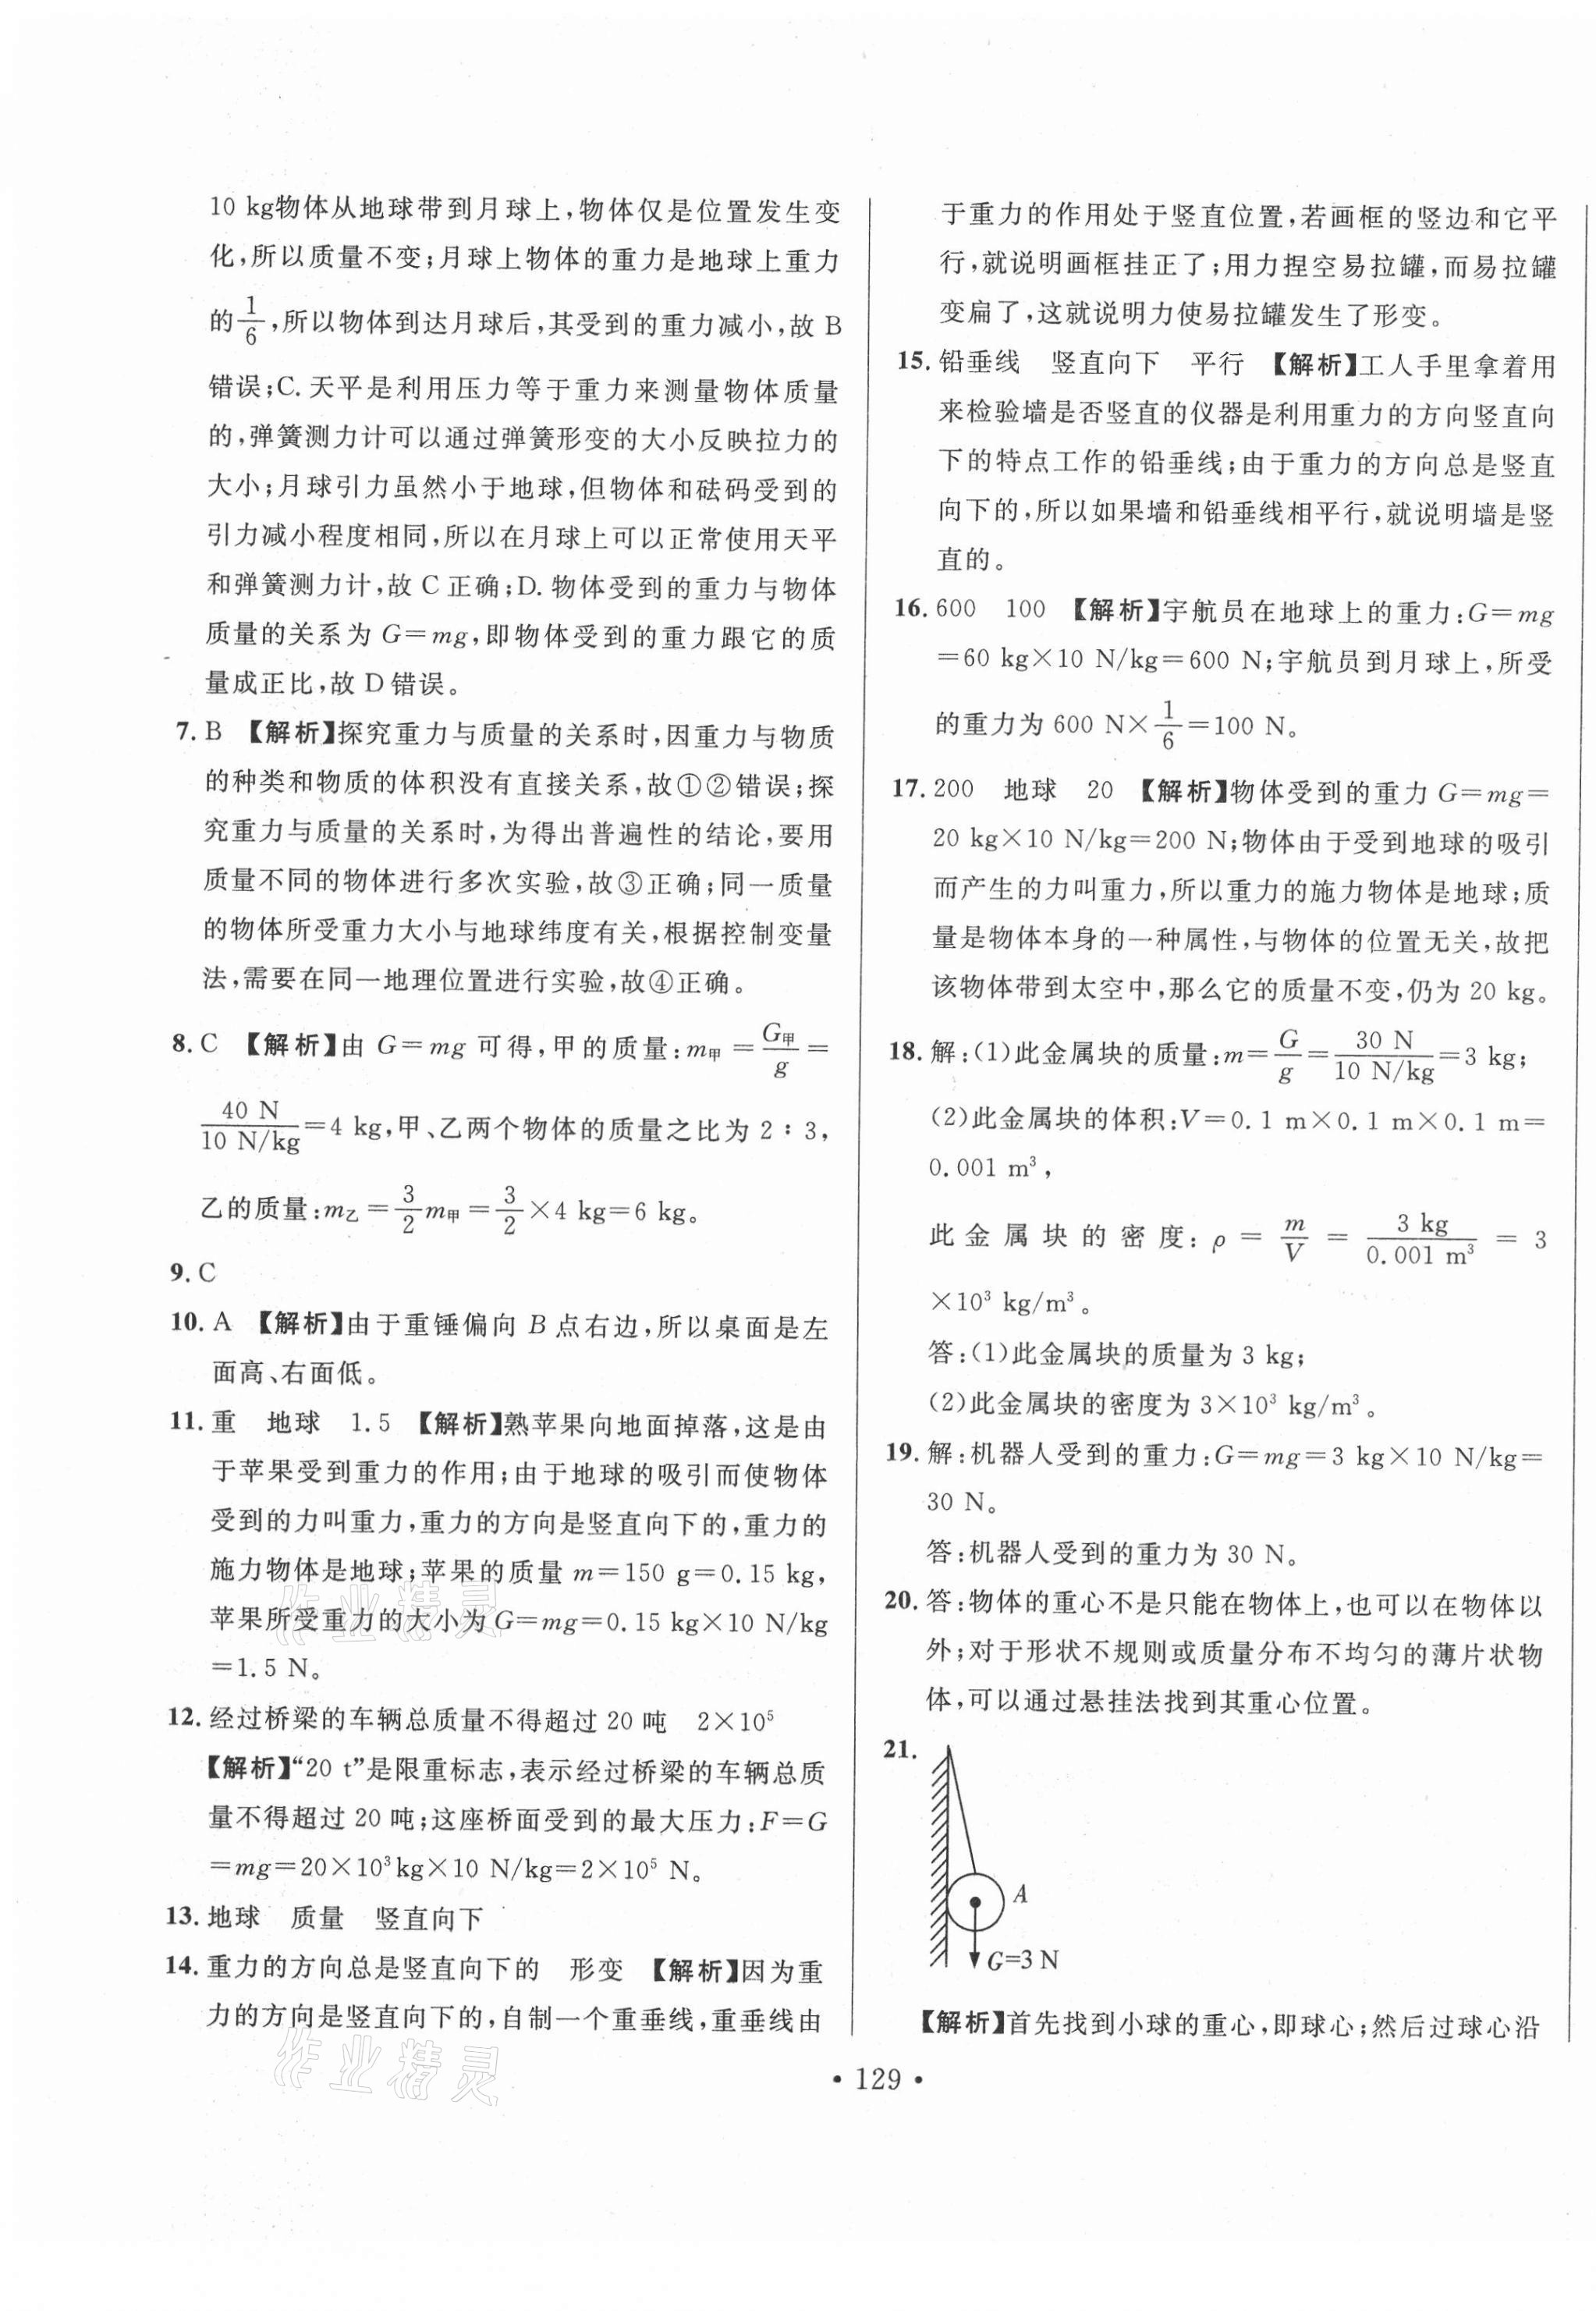 10 kg物体从地球带到月球上,物体仅是位置发生变
化,所以质量不变;月球上物体的重力是地球上重力
的1/6,所以物体到达月球后,其受到的重力减小,故 B
错误;C.天平是利用压力等于重力来测量物体质量
的,弹簧测力计可以通过弹簧形变的大小反映拉力的
大小;月球引力虽然小于地球,但物体和砝码受到的
引力减小程度相同,所以在月球上可以正常使用天平
和弹簧测力计,故 C 正确;D.物体受到的重力与物体
质量的关系为 G=mg,即物体受到的重力跟它的质
量成正比,故 D 错误。
7. B 【解析】探究重力与质量的关系时,因重力与物质
的种类和物质的体积没有直接关系,故①②错误;探
究重力与质量的关系时,为得出普遍性的结论,要用
质量不同的物体进行多次实验,故③正确;同一质量
的物体所受重力大小与地球纬度有关,根据控制变量
法,需要在同一地理位置进行实验,故④正确。
8. C 【解析】由 G=mg 可得,甲的质量:m甲=G甲/g=
40 N/10 N/kg=4 kg,甲、乙两个物体的质量之比为 2∶3,
乙的质量:m乙=3/2m甲=3/2×4 kg=6 kg。
9. C
10. A 【解析】由于重锤偏向 B 点右边,所以桌面是左
面高、右面低。
11. 重 地球 1.5 【解析】熟苹果向地面掉落,这是由
于苹果受到重力的作用;由于地球的吸引而使物体
受到的力叫重力,重力的方向是竖直向下的,重力的
施力物体是地球;苹果的质量 m=150 g=0.15 kg,
苹果所受重力的大小为 G=mg=0.15 kg×10 N/kg
=1.5 N。
12. 经过桥梁的车辆总质量不得超过 20 吨 2×10⁵
【解析】“20 t”是限重标志,表示经过桥梁的车辆总质
量不得超过 20 吨;这座桥面受到的最大压力:F=G
=mg=20×10³kg×10 N/kg=2×10⁵ N。
13. 地球 质量 竖直向下
14. 重力的方向总是竖直向下的 形变 【解析】因为重
力的方向是竖直向下的,自制一个重垂线,重垂线由
于重力的作用处于竖直位置,若画框的竖边和它平
行,就说明画框挂正了;用力捏空易拉罐,而易拉罐
变扁了,这就说明力使易拉罐发生了形变。
15. 铅垂线 竖直向下 平行 【解析】工人手里拿着用
来检验墙是否竖直的仪器是利用重力的方向竖直向
下的特点工作的铅垂线;由于重力的方向总是竖直
向下的,所以如果墙和铅垂线相平行,就说明墙是竖
直的。
16. 600 100 【解析】宇航员在地球上的重力:G=mg
=60 kg×10 N/kg=600 N;宇航员到月球上,所受
的重力为 600 N×1/6=100 N。
17. 200 地球 20 【解析】物体受到的重力 G=mg=
20 kg×10 N/kg=200 N;物体由于受到地球的吸引
而产生的力叫重力,所以重力的施力物体是地球;质
量是物体本身的一种属性,与物体的位置无关,故把
该物体带到太空中,那么它的质量不变,仍为 20 kg。
18. 解:(1)此金属块的质量:m=G/g=30 N/10 N/kg=3 kg;
(2)此金属块的体积:V=0.1 m×0.1 m×0.1 m=
0.001 m³,
此金属块的密度:ρ=m/V=3 kg/0.001 m³=3
×10³ kg/m³。
答:(1)此金属块的质量为 3 kg;
(2)此金属块的密度为 3×10³ kg/m³。
19. 解:机器人受到的重力:G=mg=3 kg×10 N/kg=
30 N。
答:机器人受到的重力为 30 N。
20. 答:物体的重心不是只能在物体上,也可以在物体以
外;对于形状不规则或质量分布不均匀的薄片状物
体,可以通过悬挂法找到其重心位置。
21.
A
G=3 N
【解析】首先找到小球的重心,即球心;然后过球心沿
• 129 •
作业精灵
作业精灵